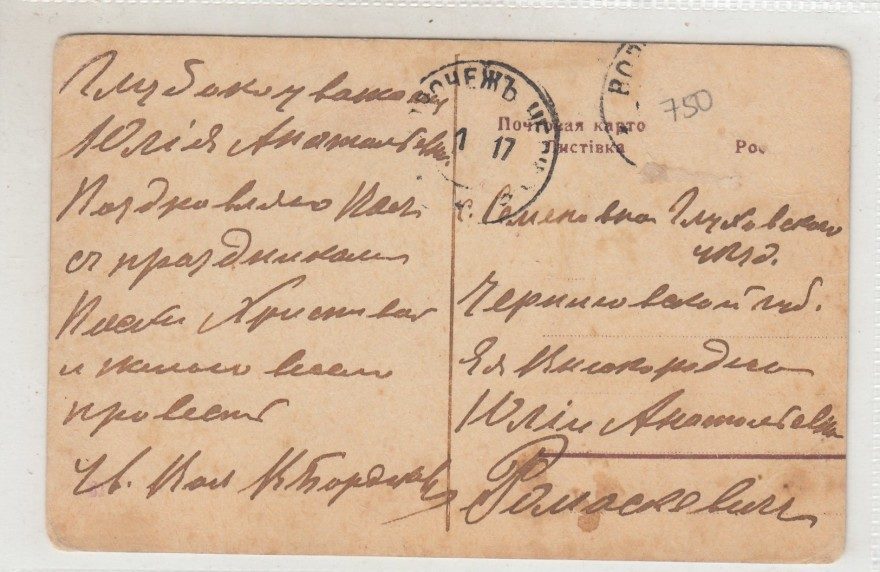 Глубокоуважаемая
Юлія Анатольевна.
Поздравляю Васъ
съ праздникомъ
и желаю весело
провести
Ув. Васъ
ВОРОНЕЖЪ ЦЕН
1 17
ВОР
750
Почтовая карто
Листівка Рос
с. Семеновка Глуховского
уѣзд.
Черниговской губ.
Ея Высокородію
Юліи Анатольевнѣ
Ромаскевич